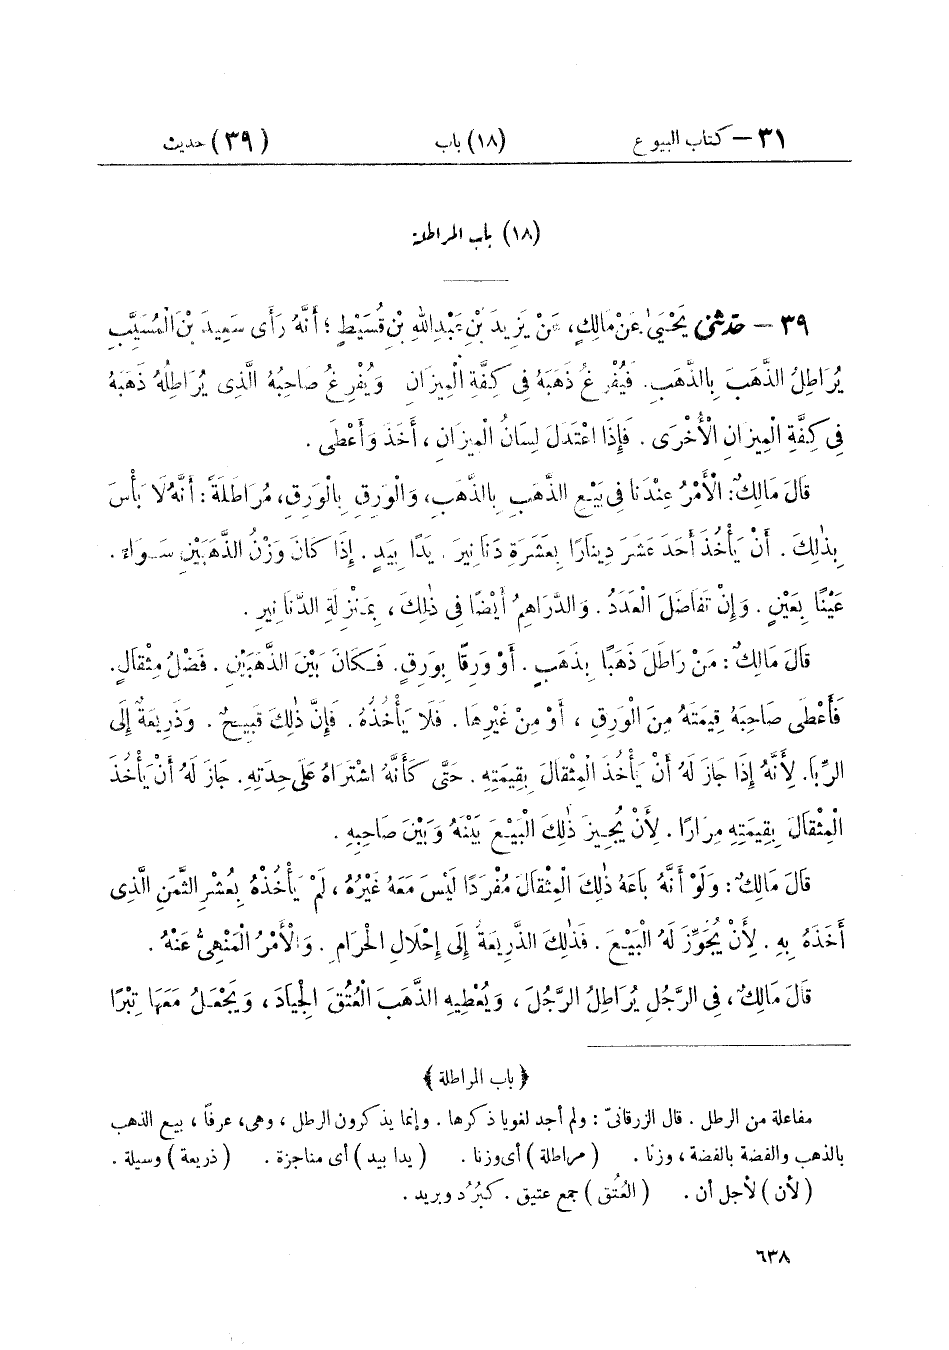 ٣١ – كتاب البيوع (١٨) باب (٣٩) حديث
(١٨) باب المراطلة
٣٩ – حَدَّثَنِي يَحْيَىٰ عَنْ مَالِكٍ، عَنْ يَزِيدَ بْنِ عَبْدِ اللهِ بْنِ قُسَيْطٍ ؛ أَنَّهُ رَأَى سَعِيدَ بْنَ الْمُسَيَّبِ
يُرَاطِلُ الذَّهَبَ بِالذَّهَبِ. فَيُفْرِغُ ذَهَبَهُ فِي كِفَّةِ الْمِيزَانِ وَيُفْرِغُ صَاحِبُهُ الَّذِي يُرَاطِلُهُ ذَهَبَهُ
فِي كِفَّةِ الْمِيزَانِ الْأُخْرَى . فَإِذَا اعْتَدَلَ لِسَانُ الْمِيزَانِ ، أَخَذَ وَأَعْطَى .
قَالَ مَالِكٌ: الْأَمْرُ عِنْدَنَا فِي بَيْعِ الذَّهَبِ بِالذَّهَبِ، وَالْوَرِقِ بِالْوَرِقِ، مُرَاطَلَةً : أَنَّهُ لَا بَأْسَ
بِذٰلِكَ . أَنْ يَأْخُذَ أَحَدَ عَشَرَ دِينَارًا بِعَشَرَةِ دَنَانِيرَ . يَدًا بِيَدٍ . إِذَا كَانَ وَزْنُ الذَّهَبَيْنِ سَوَاءً .
عَيْنًا بِعَيْنٍ . وَإِنْ تَفَاضَلَ الْعَدَدُ . وَالدَّرَاهِمُ أَيْضًا فِي ذٰلِكَ ، بِمَنْزِلَةِ الدَّنَانِيرِ .
قَالَ مَالِكٌ : مَنْ رَاطَلَ ذَهَبًا بِذَهَبٍ . أَوْ وَرِقًا بِوَرِقٍ. فَكَانَ بَيْنَ الذَّهَبَيْنِ . فَضْلُ مِثْقَالٍ.
فَأَعْطَى صَاحِبَهُ قِيمَتَهُ مِنَ الْوَرِقِ ، أَوْ مِنْ غَيْرِهَا . فَلَا يَأْخُذُهُ . فَإِنَّ ذٰلِكَ قَبِيحٌ . وَذَرِيعَةٌ إِلَى
الرِّبَا. لِأَنَّهُ إِذَا جَازَ لَهُ أَنْ يَأْخُذَ الْمِثْقَالَ بِقِيمَتِهِ . حَتَّى كَأَنَّهُ اشْتَرَاهُ عَلَى حِدَتِهِ . جَازَ لَهُ أَنْ يَأْخُذَ
الْمِثْقَالَ بِقِيمَتِهِ مِرَارًا . لِأَنْ يُجِيزَ ذٰلِكَ الْبَيْعَ بَيْنَهُ وَبَيْنَ صَاحِبِهِ .
قَالَ مَالِكٌ : وَلَوْ أَنَّهُ بَاعَهُ ذٰلِكَ الْمِثْقَالَ مُفْرَدًا لَيْسَ مَعَهُ غَيْرُهُ ، لَمْ يَأْخُذْهُ بِعُشْرِ الثَّمَنِ الَّذِي
أَخَذَهُ بِهِ . لِأَنْ يُجَوِّزَ لَهُ الْبَيْعَ . فَذٰلِكَ الذَّرِيعَةُ إِلَى إِحْلَالِ الْحَرَامِ . وَالْأَمْرُ الْمَنْهِيُّ عَنْهُ .
قَالَ مَالِكٌ ، فِي الرَّجُلِ يُرَاطِلُ الرَّجُلَ ، وَيُعْطِيهِ الذَّهَبَ الْعُتُقَ الْجِيَادَ ، وَيَجْعَلُ مَعَهَا تِبْرًا
﴿ باب المراطلة ﴾
مفاعلة من الرطل . قال الزرقانىّ : ولم أجد لغويا ذكرها . وإنما يذكرون الرطل ، وهى، عرفاً ، بيع الذهب
بالذهب والفضة بالفضة ، وزنا . ( مراطلة ) أى وزنا . ( يدا بيد ) أى مناجزة . ( ذريعة ) وسيلة .
( لأن ) لأجل أن . ( العُتُق ) جمع عتيق . كبُرُد وبريد .
٦٣٨